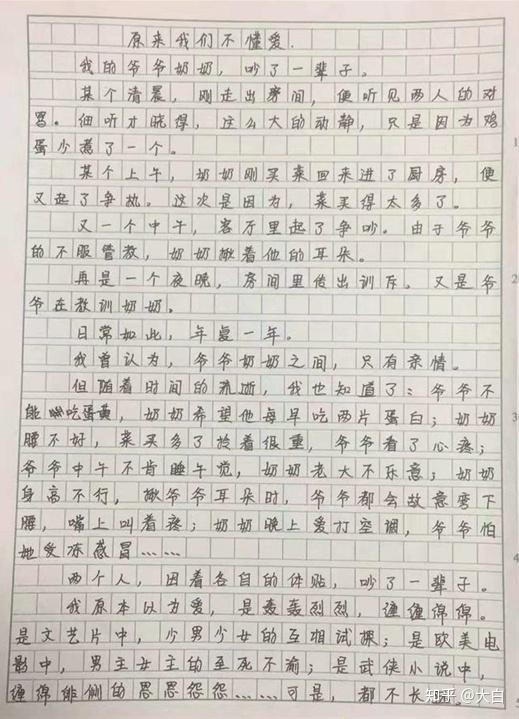 原来我们不懂爱.
我的爷爷奶奶，吵了一辈子。
某个清晨，刚走出房间，便听见两人的对
骂。细听才晓得，这么大的动静，只是因为鸡
蛋少煮了一个。
某个上午，奶奶刚买菜回来进了厨房，便
又起了争执。这次是因为，菜买得太多了。
又一个中午，客厅里起了争吵。由于爷爷
的不服管教，奶奶揪着他的耳朵。
再是一个夜晚，房间里传出训斥。又是爷
爷在教训奶奶。
日常如此，年复一年。
我曾认为，爷爷奶奶之间，只有亲情。
但随着时间的流逝，我也知道了：爷爷不
能吃蛋黄，奶奶希望他每早吃两片蛋白；奶奶
腰不好，菜买多了拎着很重，爷爷看了心疼；
爷爷中午不肯睡午觉，奶奶老大不乐意；奶奶
身高不行，揪爷爷耳朵时，爷爷都会故意弯下
腰，嘴上叫着疼；奶奶晚上爱打空调，爷爷怕
她受冻感冒……
两个人，因着各自的体贴，吵了一辈子。
我原本以为爱，是轰轰烈烈，缠缠绵绵。
是文艺片中，少男少女的互相试探；是欧美电
影中，男主女主的至死不渝；是武侠小说中，
缠绵悱恻的恩恩怨怨……可是，都不长
知乎 @大白
1
2
3
4